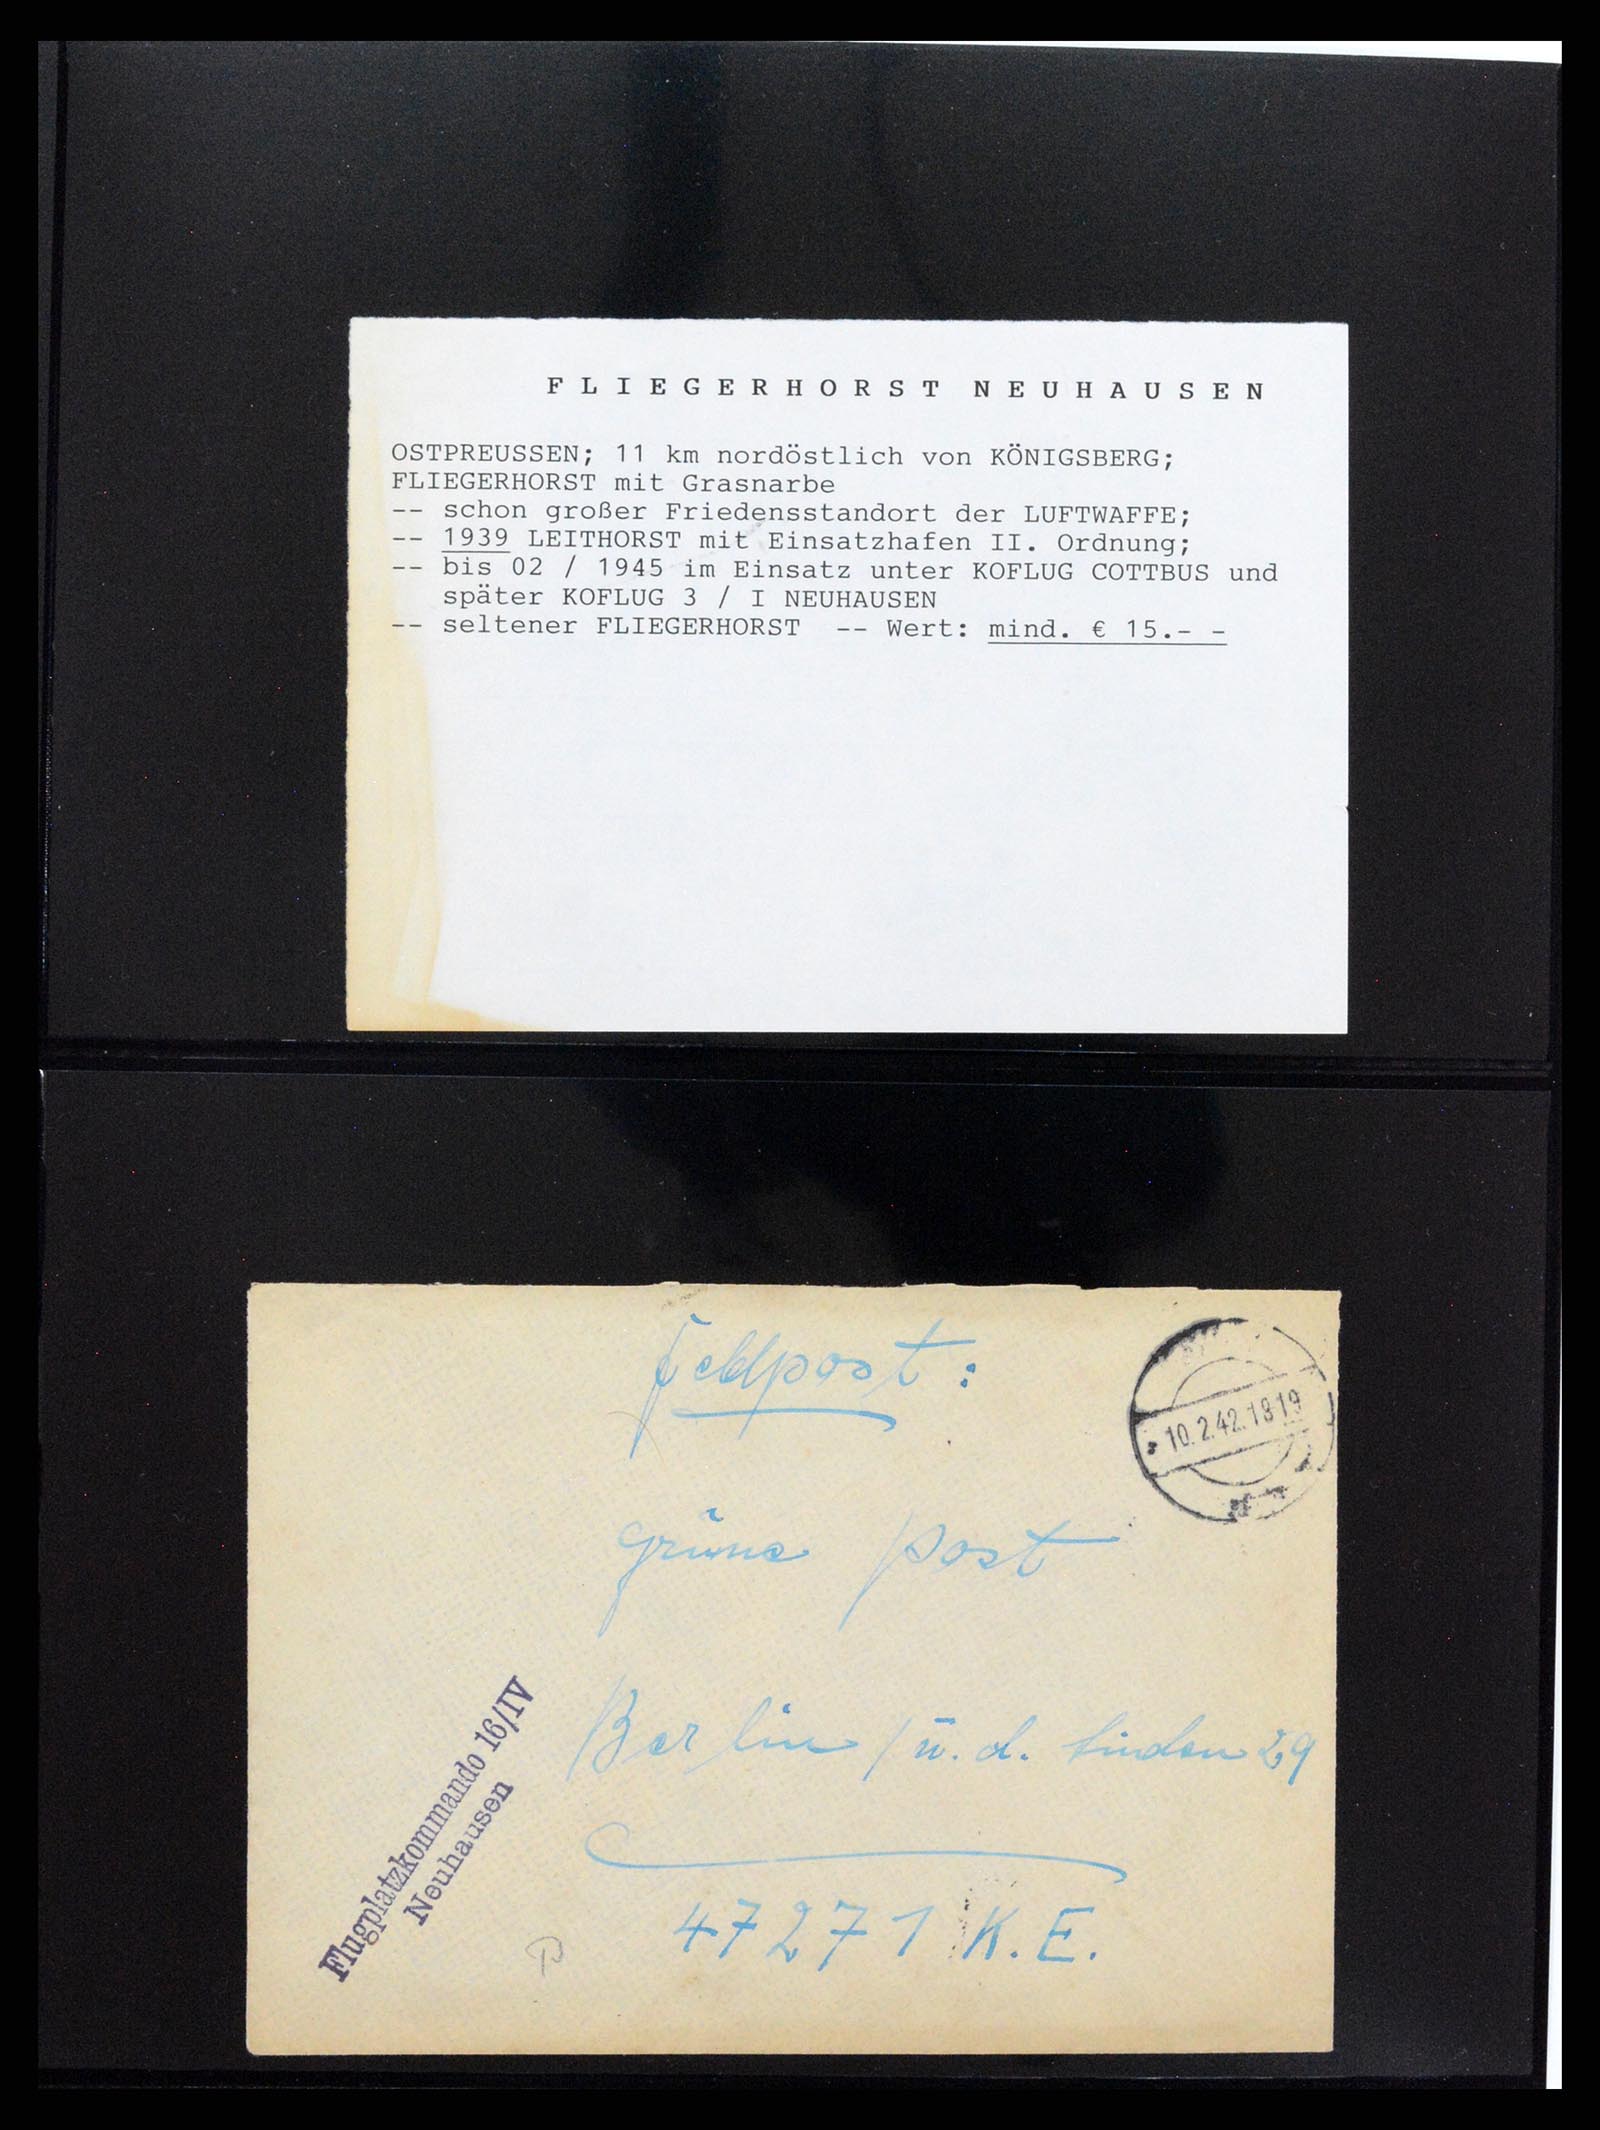 FLIEGERHORST NEUHAUSEN
OSTPREUSSEN; 11 km nordöstlich von KÖNIGSBERG;
FLIEGERHORST mit Grasnarbe
-- schon großer Friedensstandort der LUFTWAFFE;
-- 1939 LEITHORST mit Einsatzhafen II. Ordnung;
-- bis 02 / 1945 im Einsatz unter KOFLUG COTTBUS und
später KOFLUG 3 / I NEUHAUSEN
-- seltener FLIEGERHORST -- Wert: mind. € 15.- -
Feldpost:
10.2.42.1819
grüne Post
Berlin / u. d. Linden 29
Flugplatzkommando 16/IV
Neuhausen
47271 K.E.